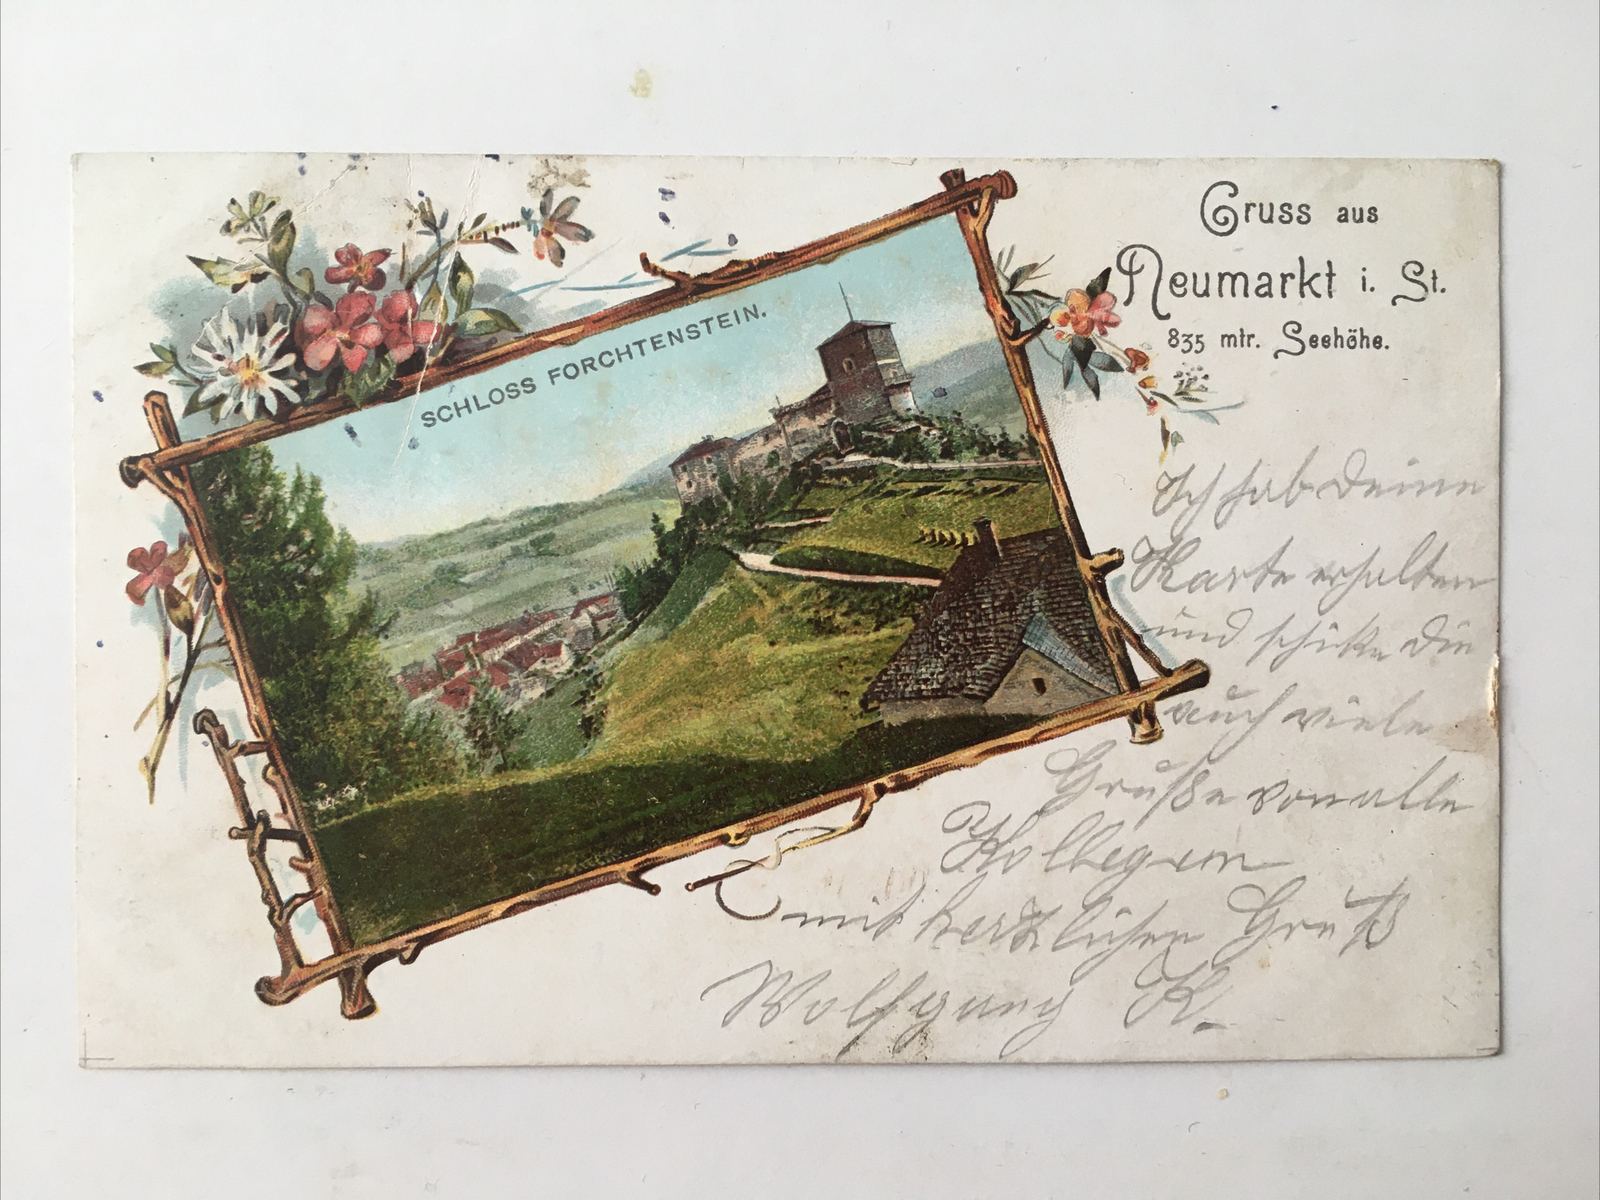 Gruss aus
Neumarkt i. St.
835 mtr. Seehöhe.
SCHLOSS FORCHTENSTEIN.
Ich hab deine
Karte erhalten
und schike die
auch viele
Grüße von alle
Kollegen
mit herzlichen Gruß
Wolfgang K.